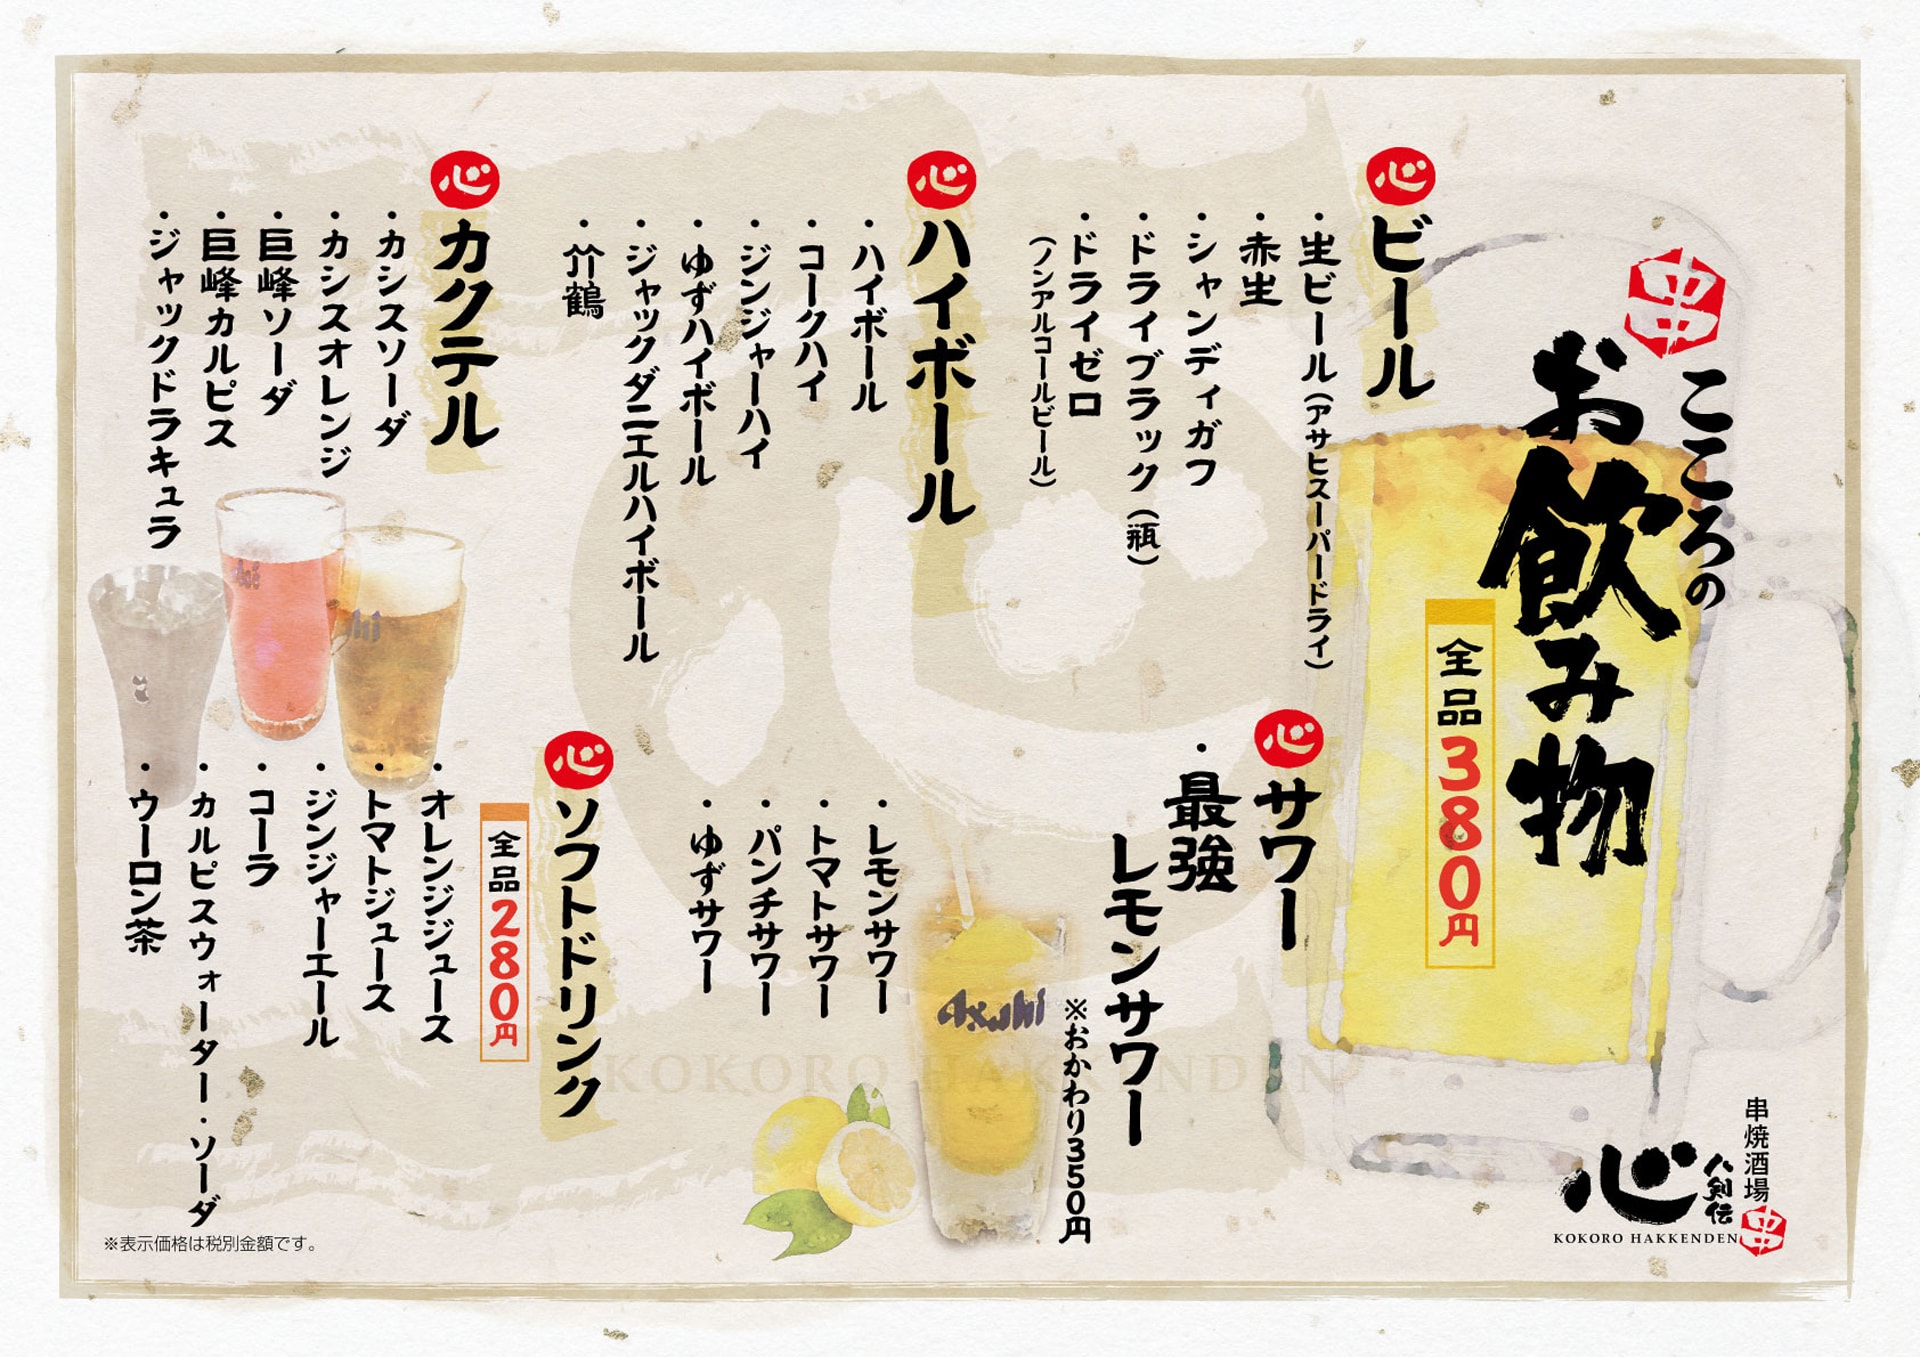 串
こころの
お飲み物
全品380円
心
ビール
・生ビール(アサヒスーパードライ)
・赤生
・シャンディガフ
・ドライブラック(瓶)
・ドライゼロ
(ノンアルコールビール)
心
ハイボール
・ハイボール
・コークハイ
・ジンジャーハイ
・ゆずハイボール
・ジャックダニエルハイボール
・竹鶴
心
カクテル
・カシスソーダ
・カシスオレンジ
・巨峰ソーダ
・巨峰カルピス
・ジャックドラキュラ
心
サワー
・最強
レモンサワー
※おかわり350円
・レモンサワー
・トマトサワー
・パンチサワー
・ゆずサワー
心
ソフトドリンク
全品280円
・オレンジジュース
・トマトジュース
・ジンジャーエール
・コーラ
・カルピスウォーター・ソーダ
・ウーロン茶
Asahi
KOKORO HAKKENDEN
※表示価格は税別金額です。
串焼酒場
串
八剣伝
心
KOKORO HAKKENDEN